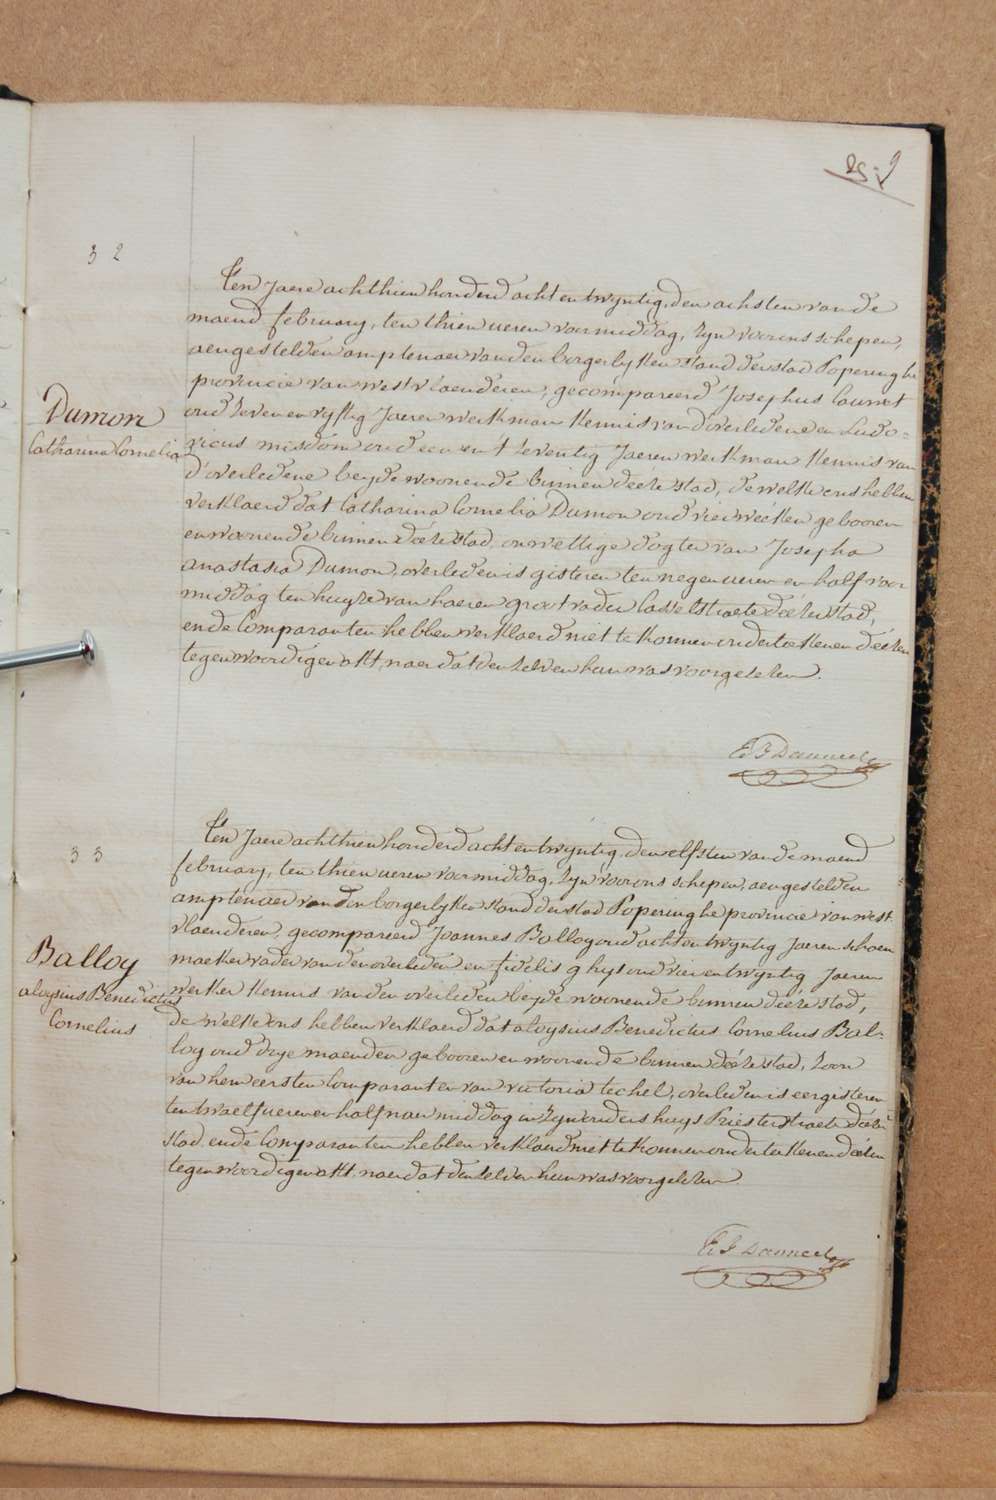 32
Ten Jaere achthien honderd acht en twyntig, den achsten van de
maend february, ten thien ueren voormiddag, zyn voor ons schepen,
aengestelden amptenaer van den borgerlyken stand der stad Poperinghe
provincie van westvlaenderen, gecompareerd Josephus
oud zeven en vyftig Jaeren werkman kennis van d'overledene en Ludo-
vicus misdom oud een en t'zeventig Jaeren werkman kennis van
d'overledene beyde woonende binnen deéze stad, de welke ons hebben
verklaerd dat Catharina Cornelia Dumon oud vier weéken gebooren
en woonende binnen deéze stad, onwettige dogter van Josepha
anastasia Dumon, overleden is gisteren ten negen ueren en half voor
middag ten huyze van haeren grootvader Casselstraete deéze stad,
en de Comparanten hebben verklaerd niet te konnen onderteekenen deézen
tegenwoordigen akt, naer dat den zelven hun was voorgelezen.
Dumon
Catharina Cornelia
33
Ten Jaere achthien honderd acht en twyntig, den elfsten van de maend
february, ten thien ueren voormiddag, zyn voor ons schepen, aengestelden
amptenaer van den borgerlyken stand der stad Poperinghe provincie van west
vlaenderen, gecompareerd Joannes Balloy oud acht en twyntig Jaeren schoen
maeker vader van den overleden en fidelis ghys oud vier en twyntig Jaeren
werker kennis van den overleden beyde woonende binnen deéze stad,
de welke ons hebben verklaerd dat aloysius Benedictus Cornelius Bal-
loy oud drye maenden gebooren en woonende binnen deéze stad, zoon
van hem eersten Comparant en van victoria techel, overleden is eergisteren
ten twaelf ueren en half naer middag in zyn ouders huys Priesterstraete deéze
stad. en de Comparanten hebben verklaerd niet te konnen onderteekenen deézen
tegenwoordigen akt, naer dat den zelven hun was voorgelezen.
Balloy
aloysius Benedictus
Cornelius